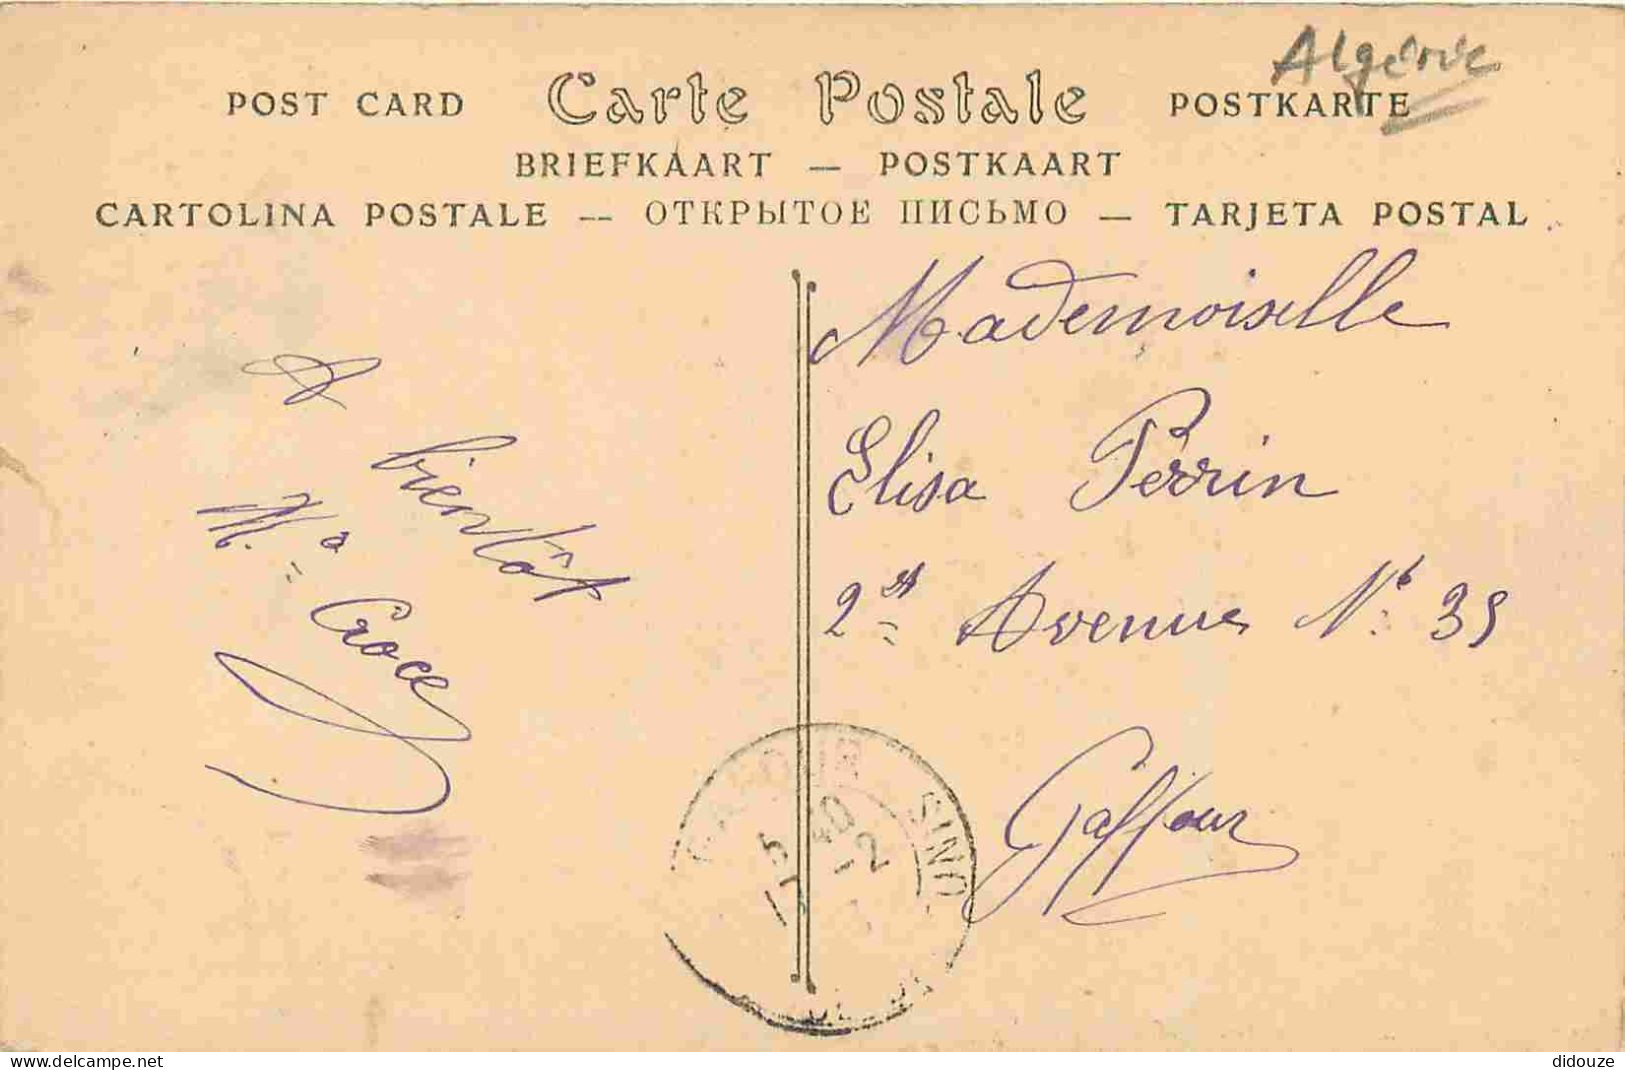 Algérie
POST CARD Carte Postale POSTKARTE
BRIEFKAART — POSTKAART
CARTOLINA POSTALE — ОТКРЫТОЕ ПИСЬМО — TARJETA POSTAL
A
bientôt
Croce
Mademoiselle
Elisa Perrin
Avenue 35
Gaffour
didouze